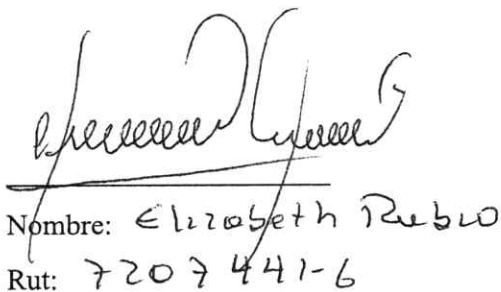 Nombre: Elizabeth Rubio
Rut: 7207441-6